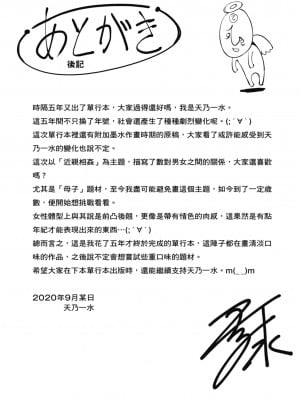 あとがき
後記
時隔五年又出了單行本,大家過得還好嗎,我是天乃一水。
這五年間不只換了年號,社會還產生了種種劇烈變化呢。(;´∀`)
這次單行本裡還有附加墨水作畫時期的原稿,大家看了或許能感受到天乃一水的變化也說不定。
這次以「近親相姦」為主題,描寫了數對男女之間的關係,大家還喜歡嗎?
尤其是「母子」題材,至今我盡可能避免畫這個主題,如今到了一定歲數,便開始想挑戰看看。
女性體型上與其說是前凸後翹,更像是帶有情色的肉感,這果然是有點年紀才能表現出來的東西…(;´∀`)
總而言之,這是我花了五年才終於完成的單行本,這陣子都在畫清淡口味的作品,之後說不定會想嘗試些重口味的題材。
希望大家在下本單行本出版時,還能繼續支持天乃一水。m(_ _)m
2020年9月某日
天乃一水